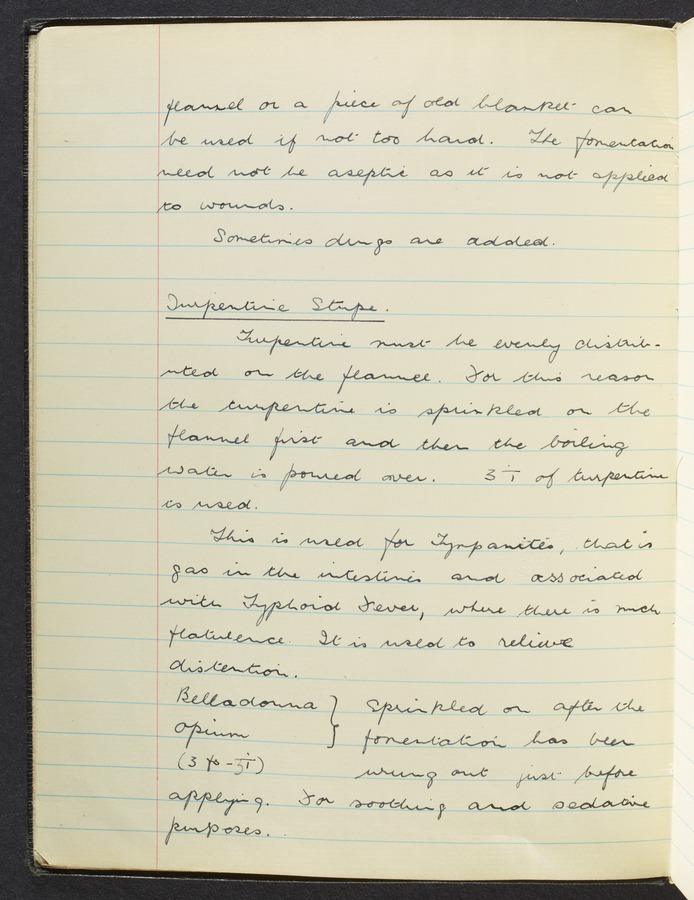 flannel or a piece of old blanket can
be used if not too hard. The fomentation
need not be aseptic as it is not applied
to wounds.
Sometimes drugs are added.
Turpentine Stupe.
Turpentine must be evenly distrib-
uted on the flannel. For this reason
the turpentine is sprinkled on the
flannel first and then the boiling
water is poured over. ʒ i of turpentine
is used.
This is used for Tympanites, that is
gas in the intestines and associated
with Typhoid Fever, where there is much
flatulence. It is used to relieve
distention.
Belladonna } Sprinkled on after the
opium } fomentation has been
wrung out just before
applying. For soothing and sedative
purposes.